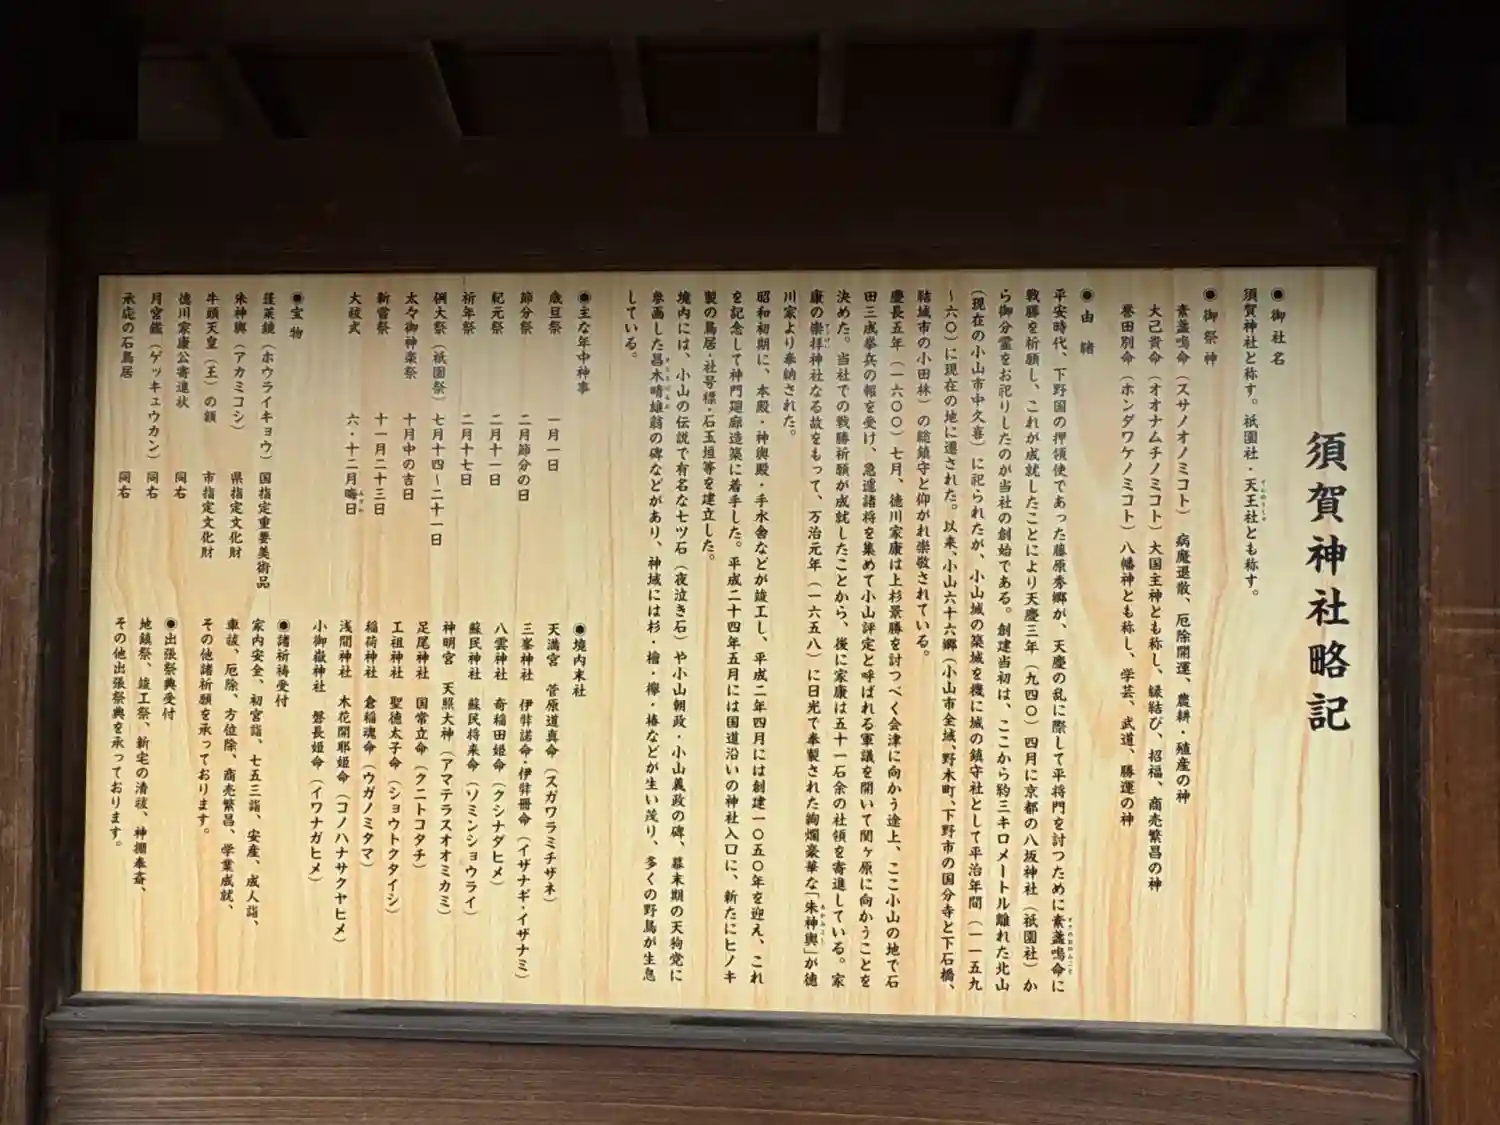 須賀神社略記
◉御社名
須賀神社と称す。祇園社・天王社とも称す。
◉御祭神
素盞嗚命（スサノオノミコト）病魔退散、厄除開運、農耕・殖産の神
大己貴命（オオナムチノミコト）大国主神とも称し、縁結び、招福、商売繁昌の神
誉田別命（ホンダワケノミコト）八幡神とも称し、学芸、武道、勝運の神
◉由緒
平安時代、下野国の押領使であった藤原秀郷が、天慶の乱に際して平将門を討つために素盞嗚命に
戦勝を祈願し、これが成就したことにより天慶三年（九四〇）四月に京都の八坂神社（祇園社）か
ら御分霊をお祀りしたのが当社の創始である。創建当初は、ここから約三キロメートル離れた北山
（現在の小山市中久喜）に祀られたが、小山城の築城を機に城の鎮守社として平治年間（一一五九
〜六〇）に現在の地に遷された。以来、小山六十六郷（小山市全域、野木町、下野市の国分寺と下石橋、
結城市の小田林）の総鎮守と仰がれ崇敬されている。
慶長五年（一六〇〇）七月、徳川家康は上杉景勝を討つべく会津に向かう途上、ここ小山の地で石
田三成挙兵の報を受け、急遽諸将を集めて小山評定と呼ばれる軍議を開いて関ヶ原に向かうことを
決めた。当社での戦勝祈願が成就したことから、後に家康は五十一石余の社領を寄進している。家
康の崇拝神社なる故をもって、万治元年（一六五八）に日光で奉製された絢爛豪華な「朱神輿」が徳
川家より奉納された。
昭和初期に、本殿・神輿殿・手水舎などが竣工し、平成二年四月には創建一〇五〇年を迎え、これ
を記念して神門廻廊造築に着手した。平成二十四年五月には国道沿いの神社入口に、新たにヒノキ
製の鳥居・社号標・石玉垣等を建立した。
境内には、小山の伝説で有名な七ツ石（夜泣き石）や小山朝政・小山義政の碑、幕末期の天狗党に
参画した昌木晴雄翁の碑などがあり、神域には杉・檜・欅・椿などが生い茂り、多くの野鳥が生息
している。
◉主な年中神事
歳旦祭　一月一日
節分祭　二月節分の日
紀元祭　二月十一日
祈年祭　二月十七日
例大祭（祇園祭）七月十四〜二十一日
太々御神楽祭　十月中の吉日
新嘗祭　十一月二十三日
大祓式　六・十二月晦日
◉宝物
蓬莱鏡（ホウライキョウ）国指定重要美術品
朱神輿（アカミコシ）　県指定文化財
牛頭天皇（王）の額　市指定文化財
徳川家康公寄進状　同右
月宮鑑（ゲッキュウカン）　同右
承応の石鳥居　同右
◉境内末社
天満宮　菅原道真命（スガワラミチザネ）
三峯神社　伊弉諾命・伊弉冊命（イザナギ・イザナミ）
八雲神社　奇稲田姫命（クシナダヒメ）
蘇民神社　蘇民将来命（ソミンショウライ）
神明宮　天照大神（アマテラスオオミカミ）
足尾神社　国常立命（クニトコタチ）
工祖神社　聖徳太子命（ショウトクタイシ）
稲荷神社　倉稲魂命（ウガノミタマ）
浅間神社　木花開耶姫命（コノハナサクヤヒメ）
小御嶽神社　磐長姫命（イワナガヒメ）
◉諸祈祷受付
家内安全、初宮詣、七五三詣、安産、成人詣、
車祓、厄除、方位除、商売繁昌、学業成就、
その他諸祈願を承っております。
◉出張祭典受付
地鎮祭、竣工祭、新宅の清祓、神棚奉斎、
その他出張祭典を承っております。